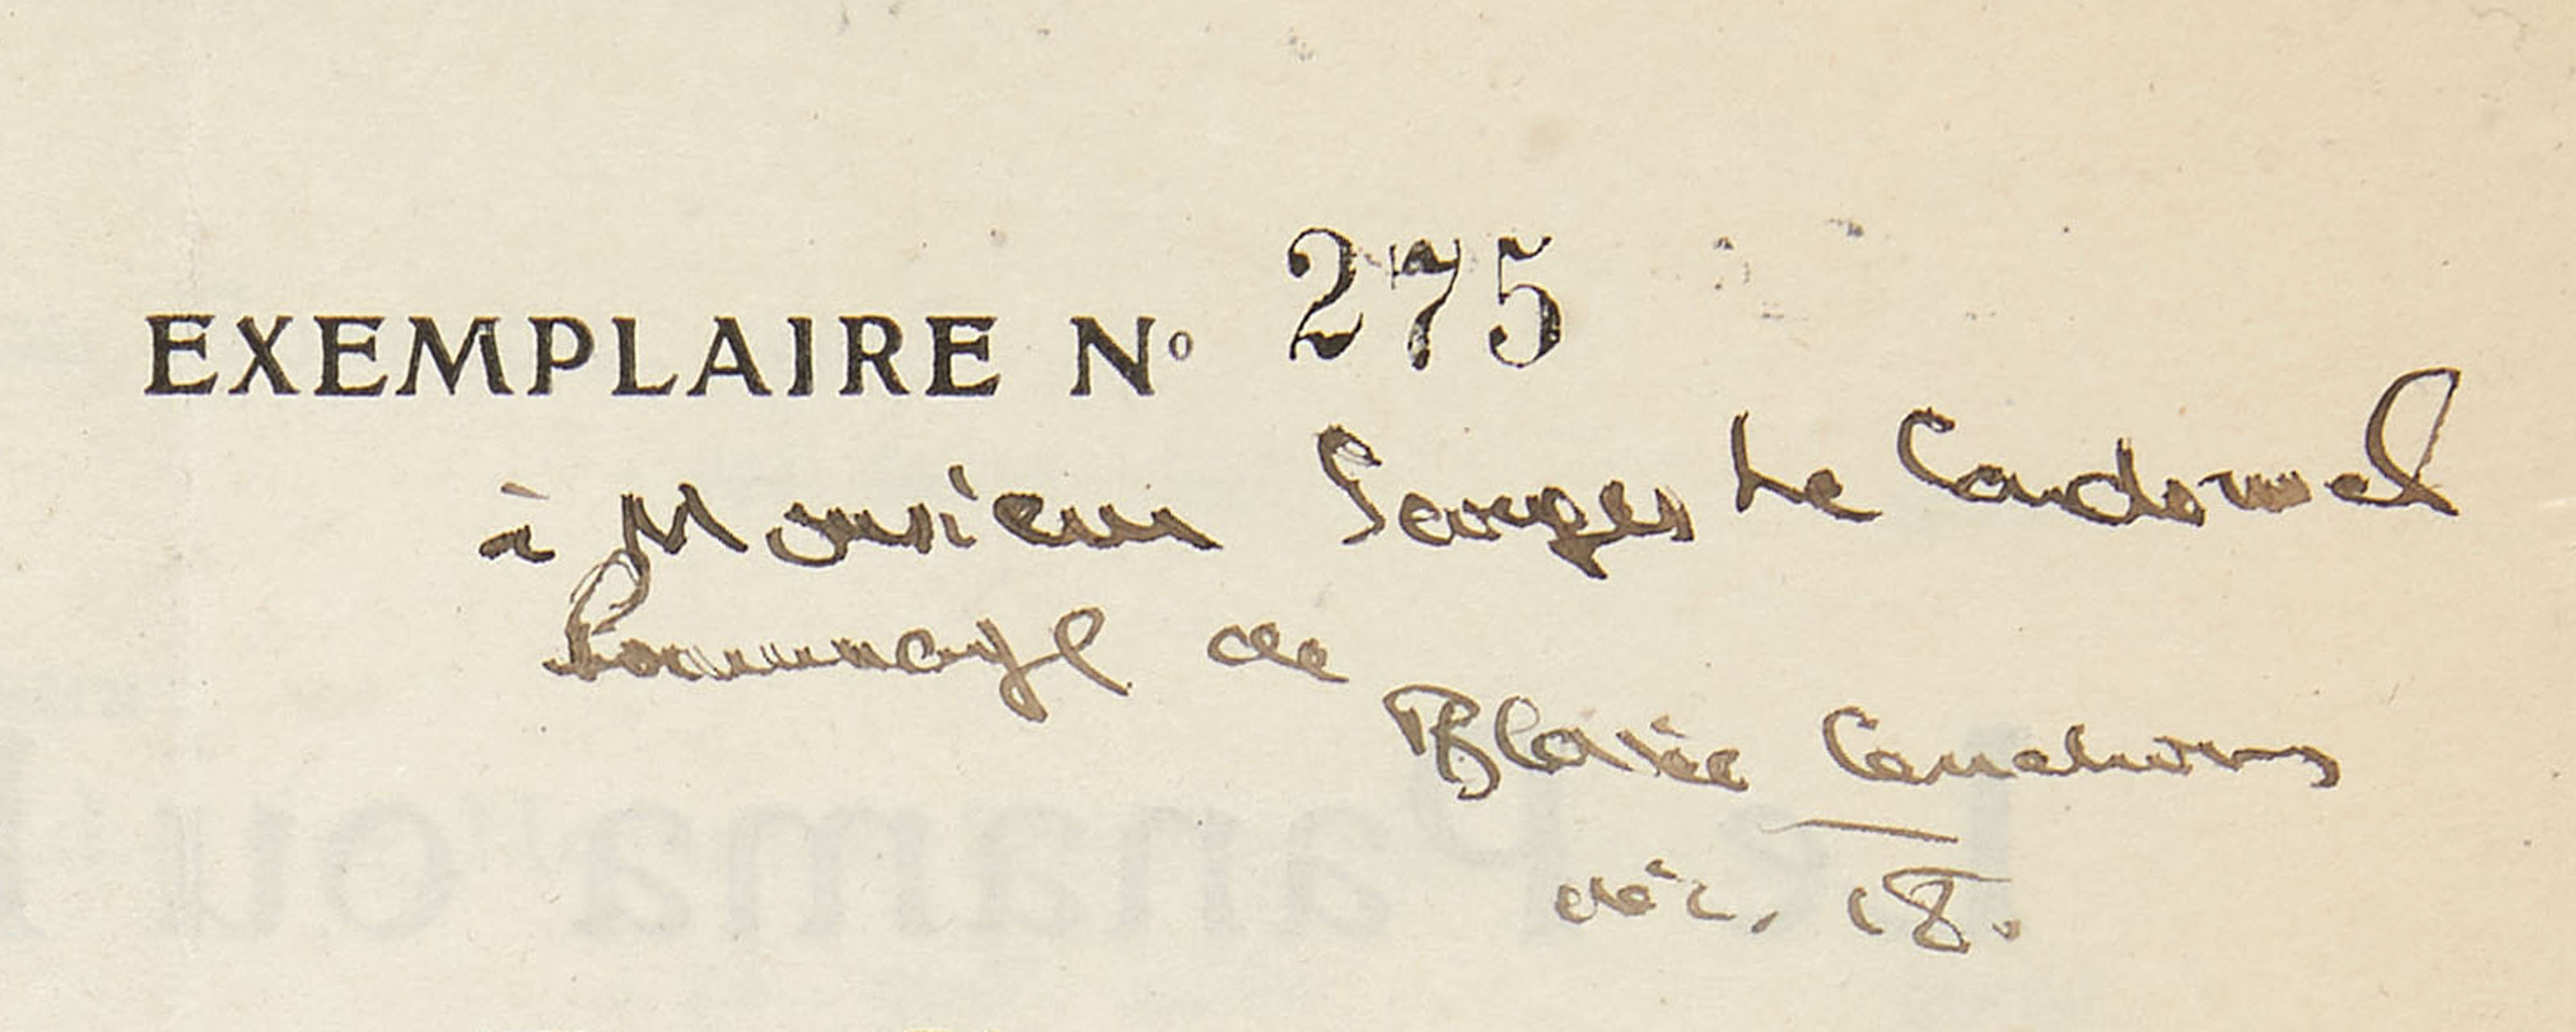 EXEMPLAIRE Nº 275
à Monsieur Georges Le Cardonnel
hommage de
Blaise Cendrars
déc. 18.
Le Panama ou l